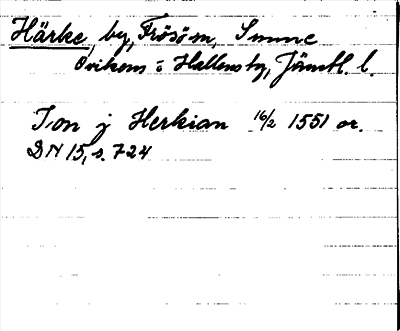 Härke, by, Frösö sn, Sunne
Ovikens o Hallens tg, Jämtl. l.
Ion j Herkian 16/2 1551 or.
DN 15, s. 724